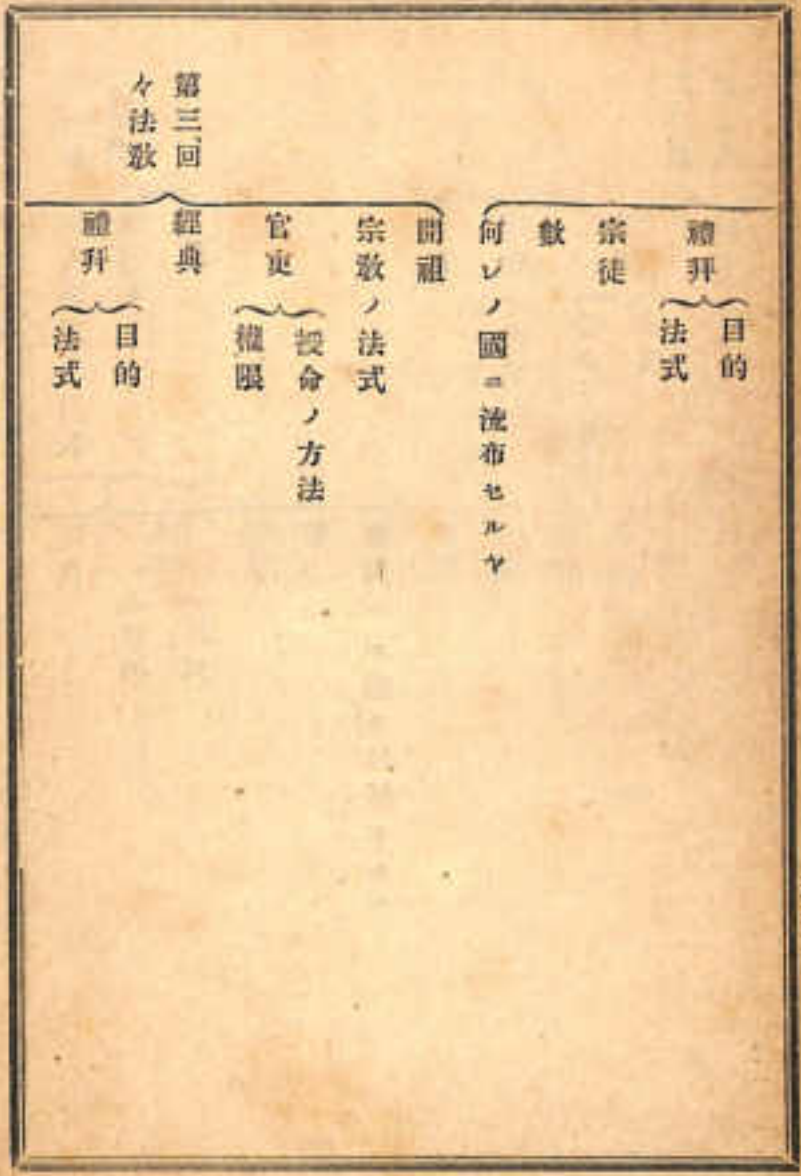 禮拜
目的
法式
宗徒
數
何レノ國ニ流布セルヤ
第三回
々法敎
開祖
宗敎ノ法式
官吏
授命ノ方法
權限
經典
禮拜
目的
法式